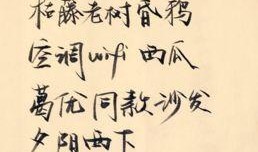 枯藤老树昏鸦
空调wifi西瓜
葛优同款沙发
夕阳西下